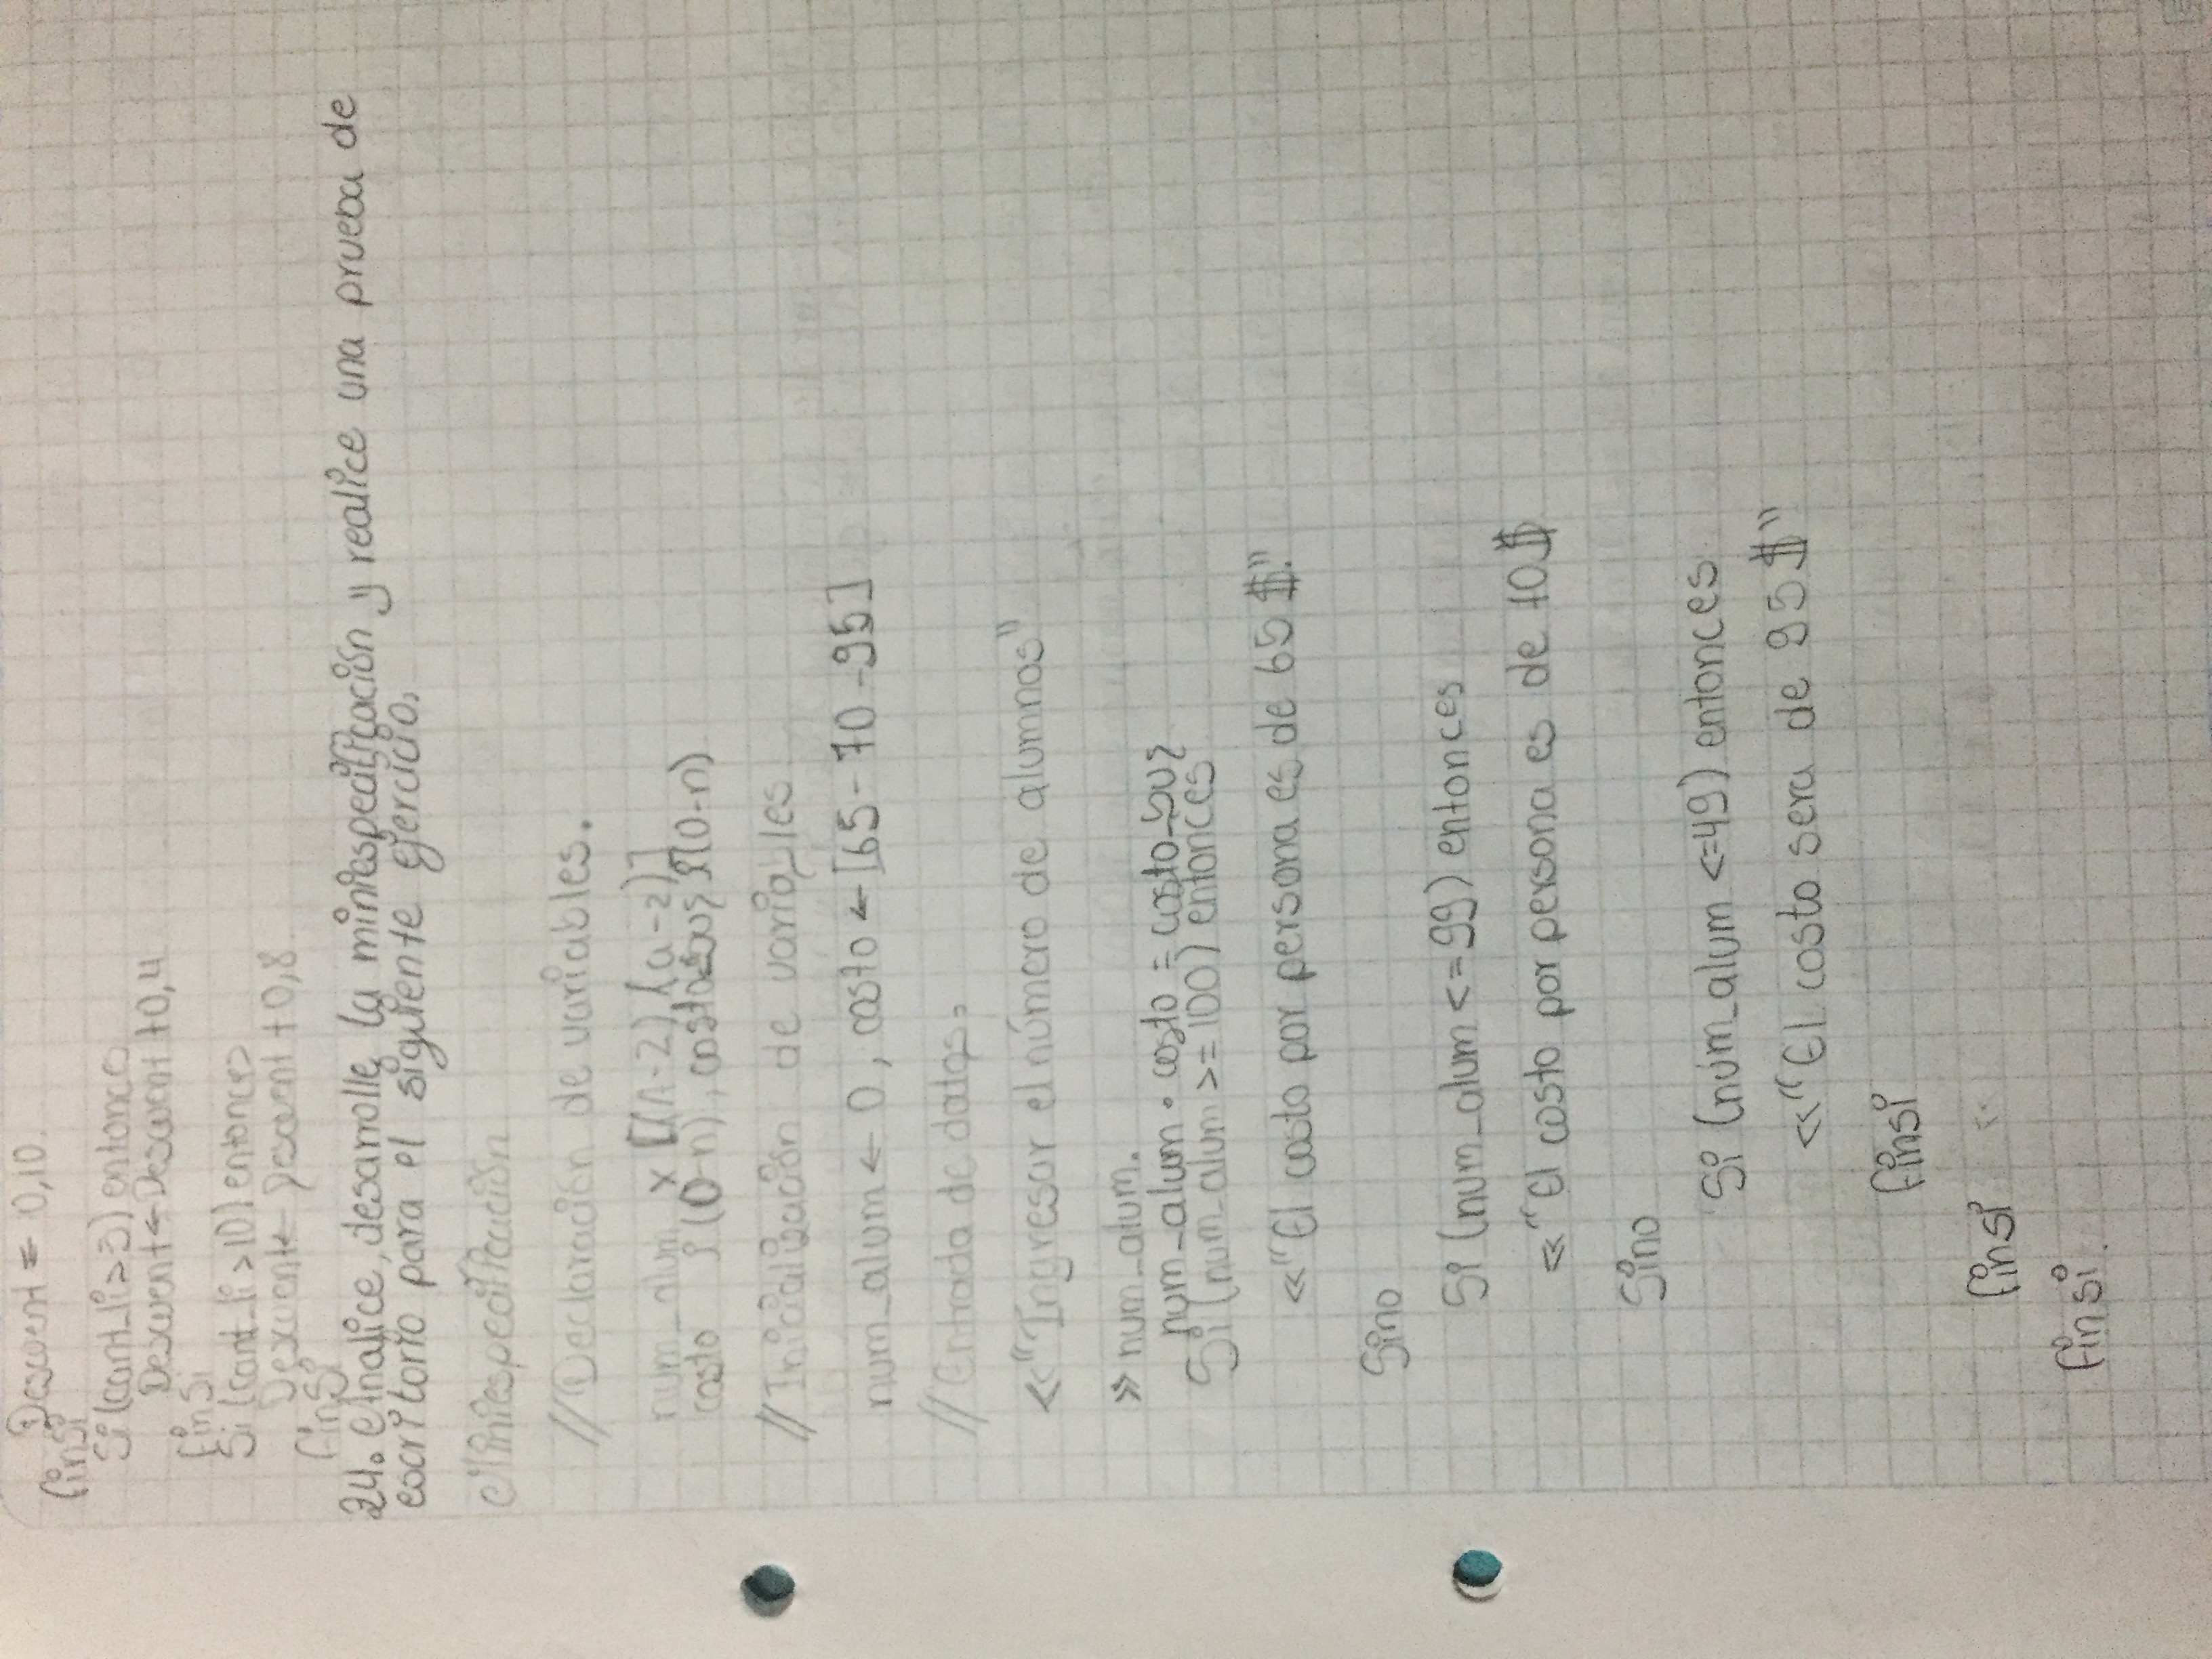 Descuent = 0,10.
finsi
Si (cant_li > 3) entonces
Descuent ← Descuent + 0,4
finSi
Si (cant_li > 10) entonces
Descuent ← Descuent + 0,8.
finSi
24. Analice, desarrolle la miniespecificación y realice una prueba de
escritorio para el siguiente ejercicio.
Miniespecificación
// Declaración de variables.
num_alum x [(A-Z), (a-z)]
costo i (0-n), costo_bus i (0-n)
// Inicialización de variables
num_alum ← 0, costo ← [65 - 70 - 95]
// Entrada de datos.
<< "Ingresar el número de alumnos"
>> num_alum.
num_alum • costo = costo_bus
Si (num_alum >= 100) entonces
<< "El costo por persona es de 65 $."
Sino
Si (num_alum <= 99) entonces
<< "El costo por persona es de 70 $
Sino
Si (núm_alum <= 49) entonces
<< "El costo sera de 95 $"
finsi
finsi
finsi.